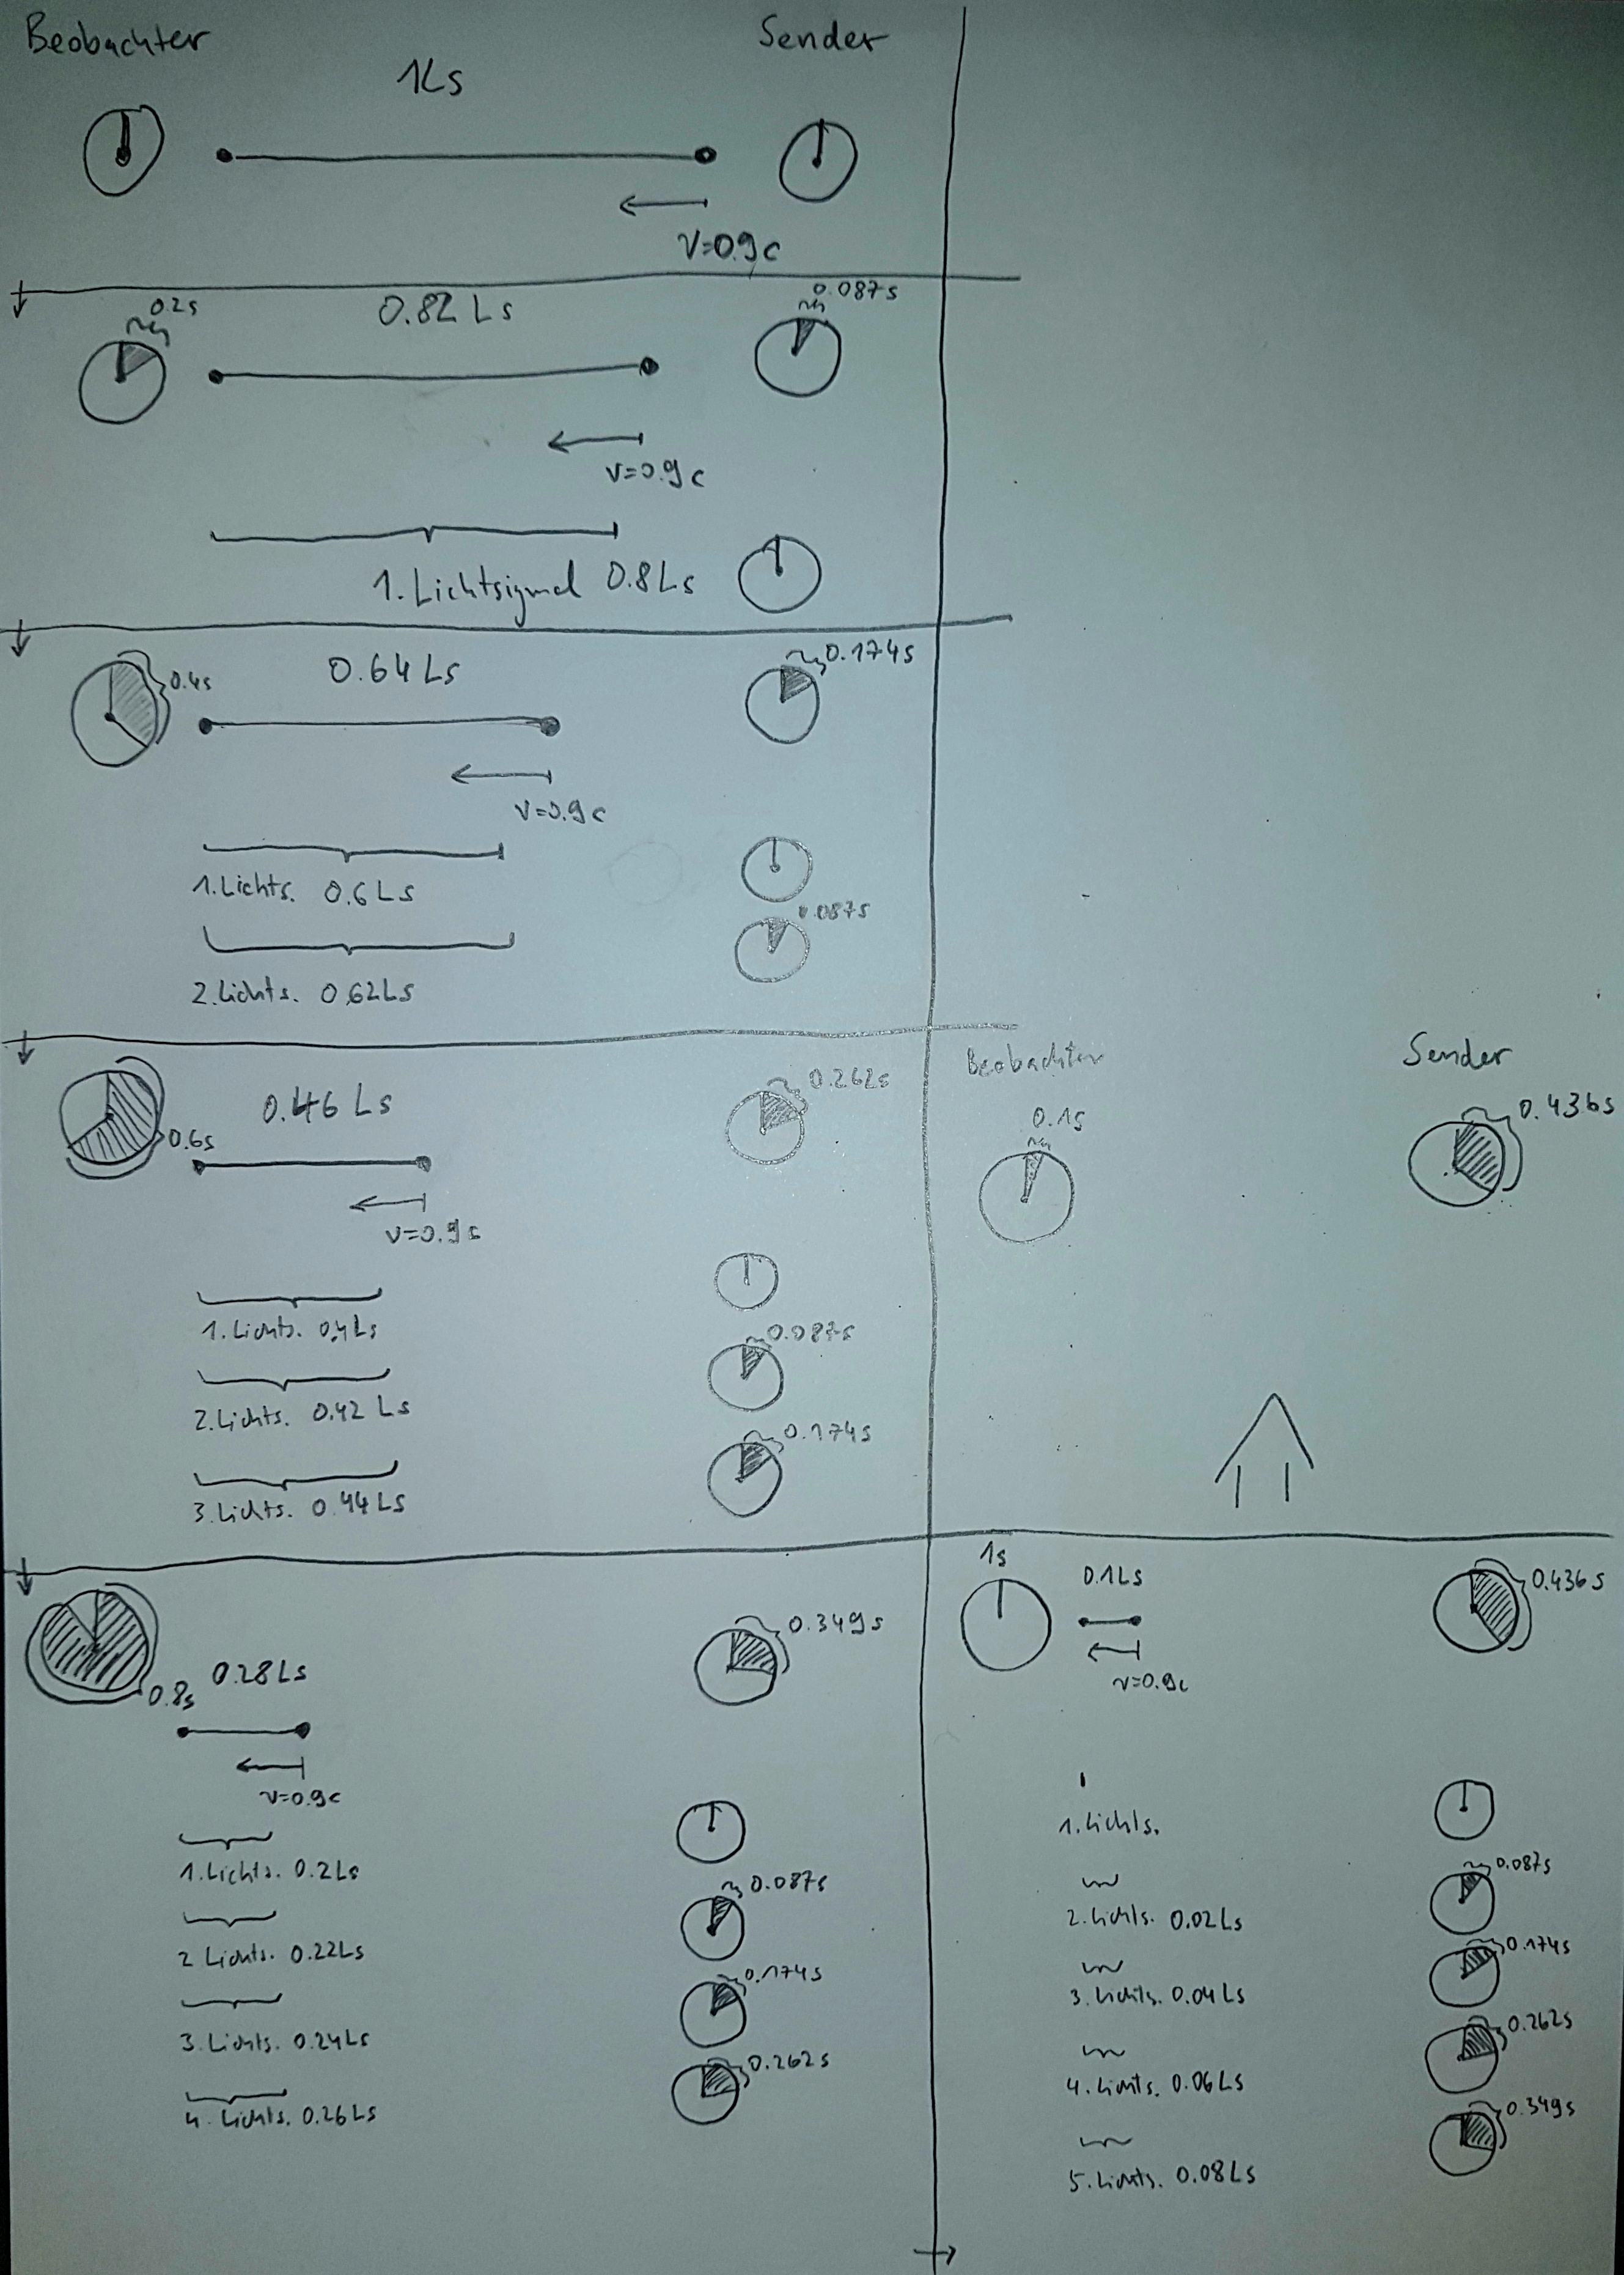 Beobachter
Sender
1Ls
V=0.9c
0.2s
0.82 Ls
0.087s
v=0.9c
1. Lichtsignal 0.8Ls
0.4s
0.64 Ls
0.174s
v=0.9c
1. Lichts. 0.6 Ls
0.087s
2. Lichts. 0.62Ls
0.6s
0.46 Ls
0.262s
v=0.9c
1. Lichts. 0.4Ls
0.087s
2. Lichts. 0.42 Ls
0.174s
3. Lichts. 0.44 Ls
0.8s
0.28 Ls
0.349s
v=0.9c
1. Lichts. 0.2Ls
0.087s
2 Lichts. 0.22Ls
0.174s
3. Lichts. 0.24Ls
0.262s
4. Lichts. 0.26Ls
Beobachter
Sender
0.1s
0.436s
1s
0.1Ls
0.436s
v=0.9c
1. Lichts.
0.087s
2. Lichts. 0.02Ls
0.174s
3. Lichts. 0.04Ls
0.262s
4. Lichts. 0.06Ls
0.349s
5. Lichts. 0.08Ls